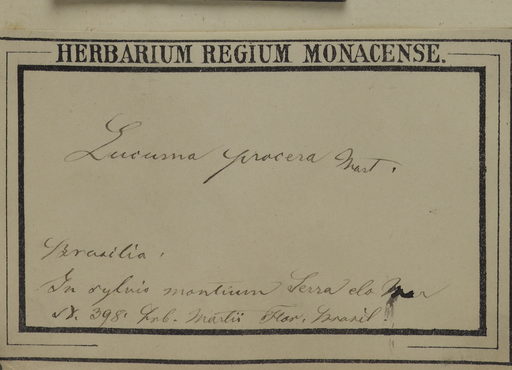 HERBARIUM REGIUM MONACENSE.
Lucuma procera Mart.
Brasilia.
In sylvis montium Serra do Mar
N. 398. Hrb. Martii Flor. Brasil.